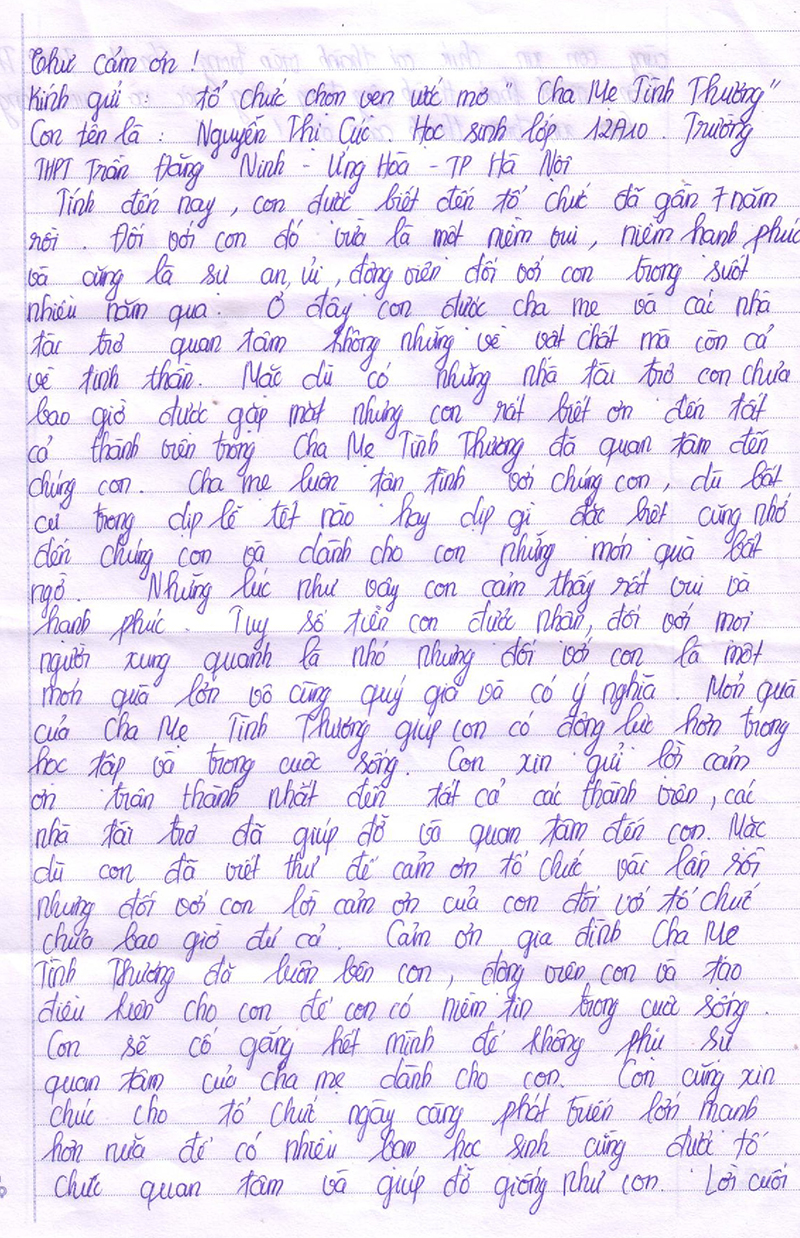 Thư cảm ơn !
Kính gửi : tổ chức chọn vẹn ước mơ " Cha Mẹ Tình Thương"
Con tên là : Nguyễn Thị Cúc . Học sinh lớp 12A10 . Trường
THPT Trần Đăng Ninh - Ứng Hòa - TP Hà Nội
Tính đến nay , con được biết đến tổ chức đã gần 7 năm
rồi . Đối với con đó vừa là một niềm vui , niềm hạnh phúc
và cũng là sự an, ủi , động viên đối với con trong suốt
nhiều năm qua . Ở đây con được cha mẹ và các nhà
tài trợ quan tâm không những về vật chất mà còn cả
về tinh thần. Mặc dù có những nhà tài trợ con chưa
bao giờ được gặp mặt nhưng con rất biết ơn đến tất
cả thành viên trong Cha Mẹ Tình Thương đã quan tâm đến
chúng con. Cha mẹ luôn tận tình với chúng con , dù bất
cứ trong dịp lễ tết nào hay dịp gì đặc biệt cũng nhớ
đến chúng con và dành cho con những món quà bất
ngờ . Những lúc như vậy con cảm thấy rất vui và
hạnh phúc . Tuy số tiền con được nhận, đối với mọi
người xung quanh là nhỏ nhưng đối với con là một
món quà lớn vô cùng quý giá và có ý nghĩa . Món quà
của Cha Mẹ Tình Thương giúp con có động lực hơn trong
học tập và trong cuộc sống. Con xin gửi lời cảm
ơn trân thành nhất đến tất cả các thành viên , các
nhà tài trợ đã giúp đỡ và quan tâm đến con. Mặc
dù con đã viết thư để cảm ơn tổ chức vài lần rồi
nhưng đối với con lời cảm ơn của con đối với tổ chức
chưa bao giờ đủ cả . Cảm ơn gia đình Cha Mẹ
Tình Thương đã luôn bên con , động viên con và tạo
điều kiện cho con để con có niềm tin trong cuộc sống .
Con sẽ cố gắng hết mình để không phụ sự
quan tâm của cha mẹ dành cho con. Con cũng xin
chúc cho tổ chức ngày càng phát triển lớn mạnh
hơn nữa để có nhiều bạn học sinh cũng được tổ
chức quan tâm và giúp đỡ giống như con. Lời cuối